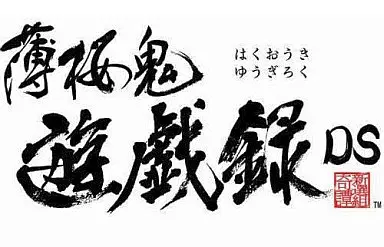 薄桜鬼
はくおうき
ゆうぎろく
遊戯録DS
新選組奇譚
TM